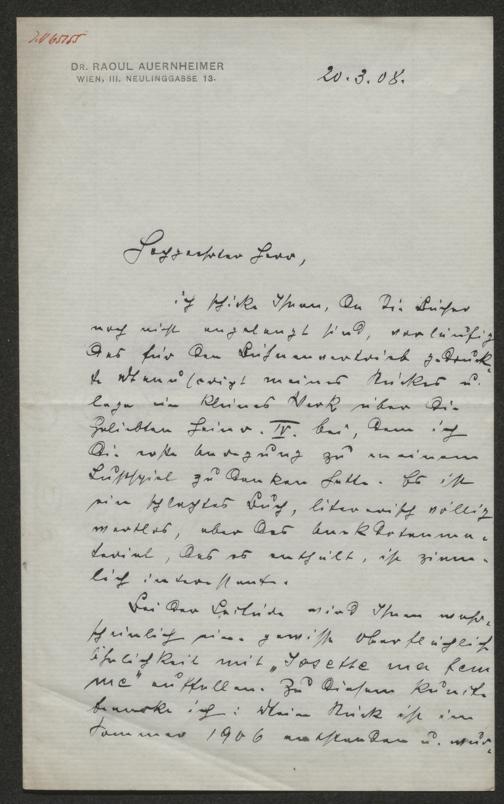 I.N 65155
DR. RAOUL AUERNHEIMER
WIEN, III. NEULINGGASSE 13.
20.3.08.
Hochgeehrter Herr,
ich schicke Ihnen, da die Bücher
noch nicht angelangt sind, vorläufig
das für den Bühnenvertrieb gedruck-
te Manuscript meines Stückes u.
lege ein kleines Werk über die
Geliebten Heinr. IV. bei, dem ich
die erste Anregung zu meinem
Lustspiel zu danken hatte. Es ist
ein schlechtes Buch, literarisch völlig
wertlos, aber das Anekdotenma-
terial, das es enthält, ist ziem-
lich interessant.
Bei der Lektüre wird Ihnen wahr-
scheinlich eine gewisse oberflächlich
Ähnlichkeit mit „Josette ma fem
me" auffallen. Zu diesem Punkte
bemerke ich: Mein Stück ist im
Sommer 1906 entstanden u. wur-